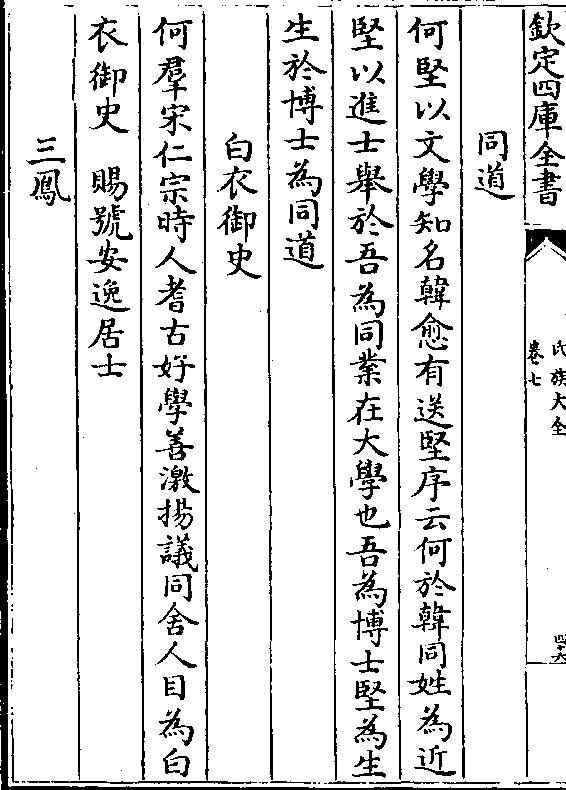 欽定四庫全書
氏族大全
卷七
四十六
同道
何堅以文學知名韓愈有送堅序云何於韓同姓為近
堅以進士舉於吾為同業在大學也吾為博士堅為生
生於博士為同道
白衣御史
何羣宋仁宗時人耆古好學善激揚議同舍人目為白
衣御史　賜號安逸居士
三鳳